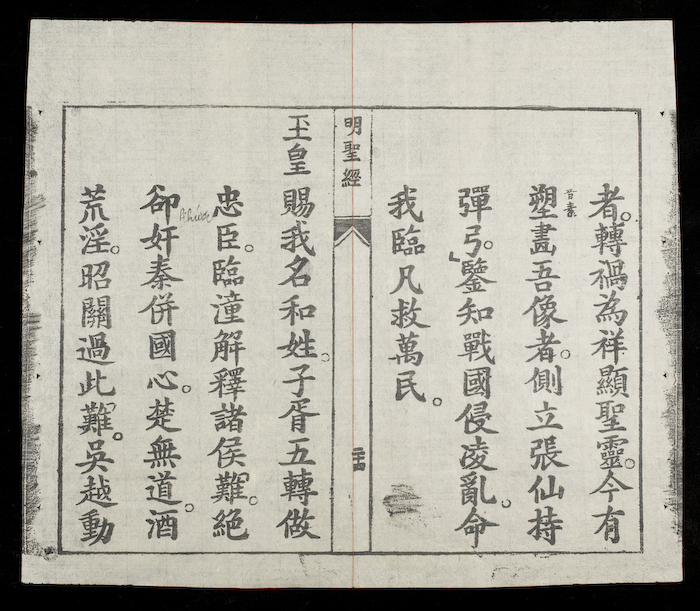 者。轉禍為祥顯聖靈。今有
塑畫吾像者。側立張仙持
音素
彈弓。鑒知戰國侵凌亂。命
我臨凡救萬民。
明聖經
二十四
玉皇
賜我名和姓。子胥五轉做
忠臣。臨潼解釋諸侯難。絕
卻奸秦併國心。楚無道。酒
荒淫。昭關過此難。吳越動